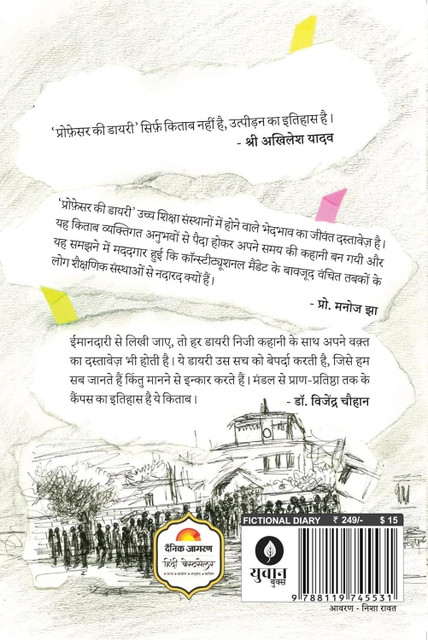 ‘प्रोफ़ेसर की डायरी’ सिर्फ़ किताब नहीं है, उत्पीड़न का इतिहास है।
- श्री अखिलेश यादव
‘प्रोफ़ेसर की डायरी’ उच्च शिक्षा संस्थानों में होने वाले भेदभाव का जीवंत दस्तावेज़ है।
यह किताब व्यक्तिगत अनुभवों से पैदा होकर अपने समय की कहानी बन गयी और
यह समझने में मददगार हुई कि कॉन्स्टीट्यूशनल मैंडेट के बावजूद वंचित तबकों के
लोग शैक्षणिक संस्थाओं से नदारद क्यों हैं।
- प्रो. मनोज झा
ईमानदारी से लिखी जाए, तो हर डायरी निजी कहानी के साथ अपने वक़्त
का दस्तावेज़ भी होती है। ये डायरी उस सच को बेपर्दा करती है, जिसे हम
सब जानते हैं किंतु मानने से इन्कार करते हैं। मंडल से प्राण-प्रतिष्ठा तक के
कैंपस का इतिहास है ये किताब।
- डॉ. विजेंद्र चौहान
FICTIONAL DIARY ₹ 249/- $ 15
दैनिक जागरण
हिंदी बेस्टसेलर
युवान
बुक्स
9 788119 745531
आवरण - निशा रावत